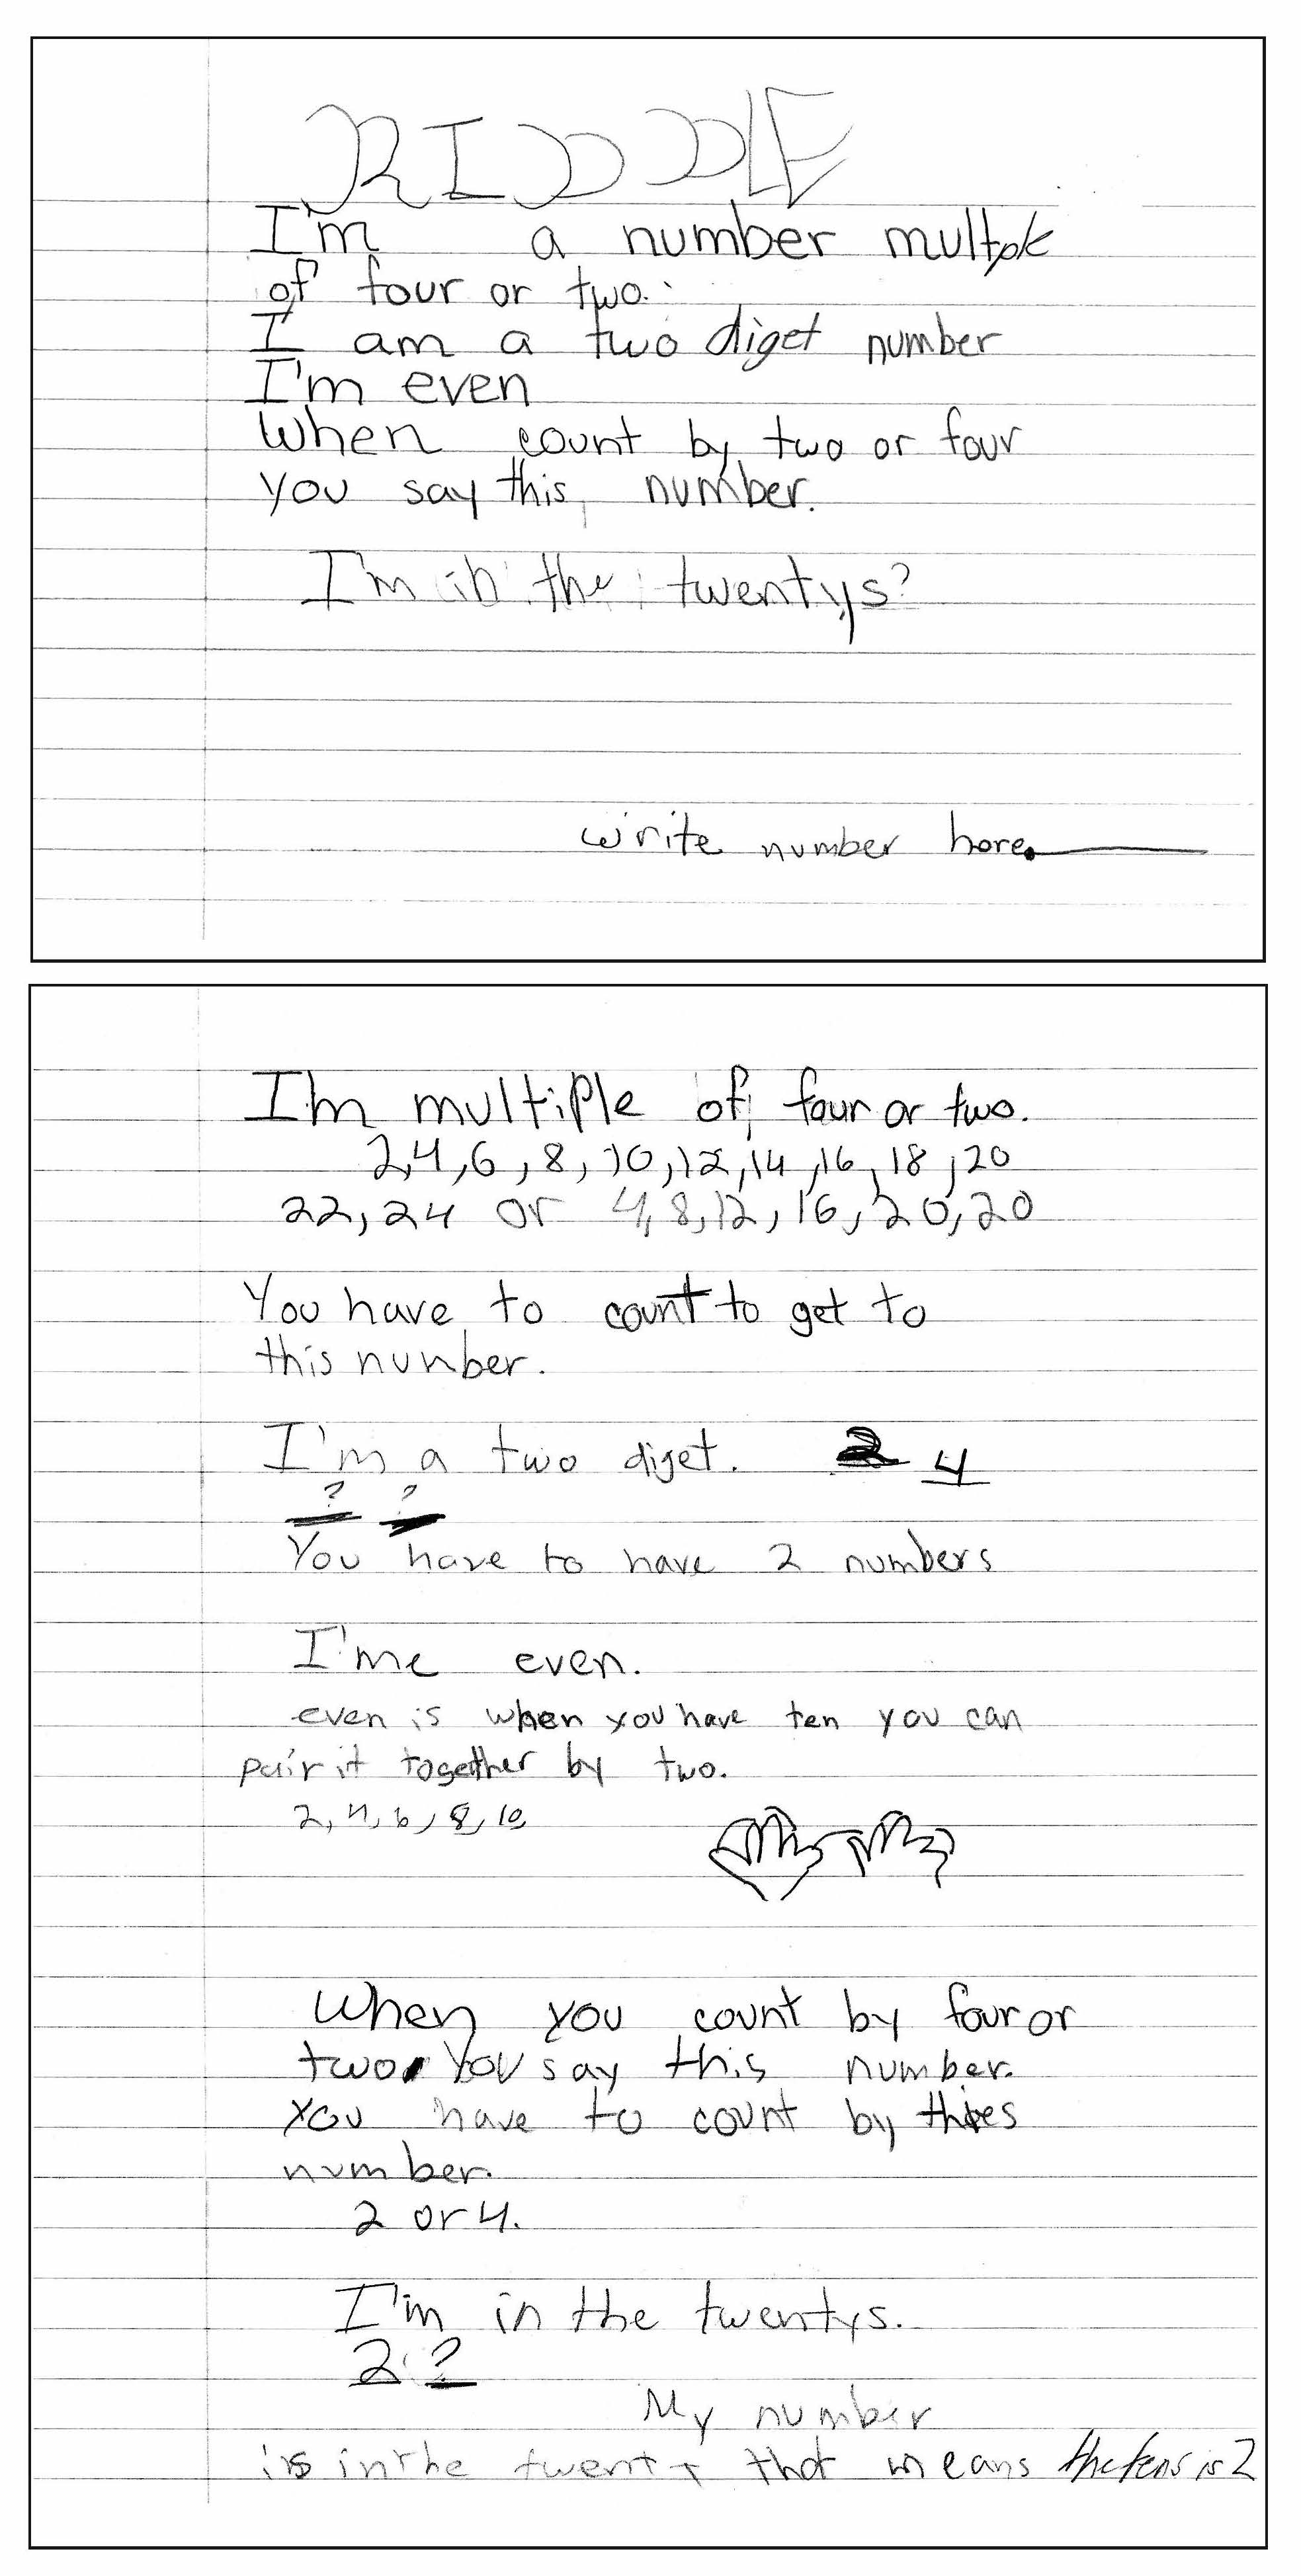 RIDDLE
I'm a number multple
of four or two.
I am a two diget number
I'm even
When count by two or four
you say this number.
I'm in the twentys?
write number here.
I'm multiple of four or two.
2,4,6,8,10,12,14,16,18,20
22,24 or 4,8,12,16,20,20
You have to count to get to
this nunber.
I'm a two diget. 2 4
? ?
You have to have 2 numbers
I'me even.
even is when you have ten you can
pair it together by two.
2,4,6,8,10,
When you count by four or
two. You say this number.
You have to count by
number.
2 or 4.
I'm in the twentys.
2 ?
My number
is in the twenty that means the tens is 2